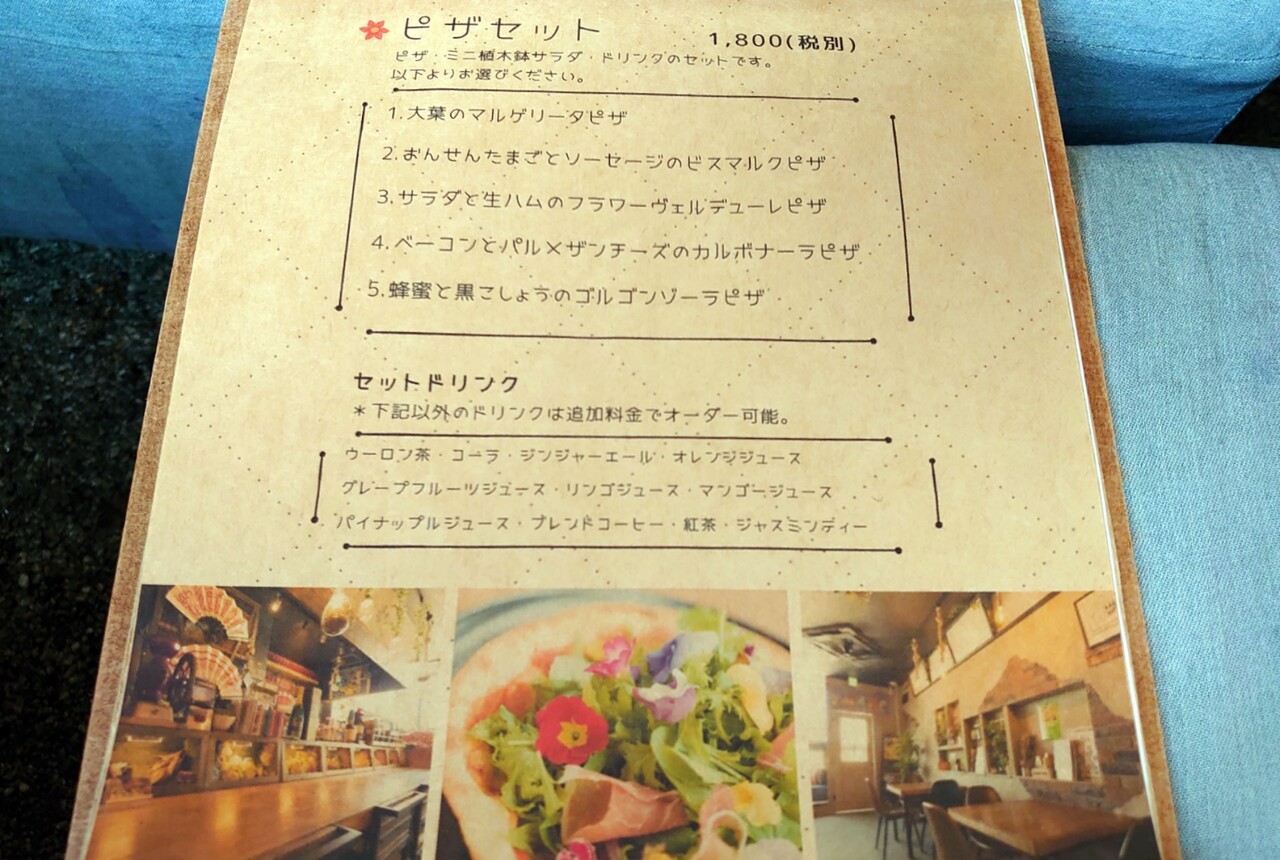 ピザセット 1,800(税別)
ピザ・ミニ植木鉢サラダ・ドリンクのセットです。
以下よりお選びください。
1.大葉のマルゲリータピザ
2.おんせんたまごとソーセージのビスマルクピザ
3.サラダと生ハムのフラワーヴェルデューレピザ
4.ベーコンとパルメザンチーズのカルボナーラピザ
5.蜂蜜と黒こしょうのゴルゴンゾーラピザ
セットドリンク
*下記以外のドリンクは追加料金でオーダー可能。
ウーロン茶・コーラ・ジンジャーエール・オレンジジュース
グレープフルーツジュース・リンゴジュース・マンゴージュース
パイナップルジュース・ブレンドコーヒー・紅茶・ジャスミンティー